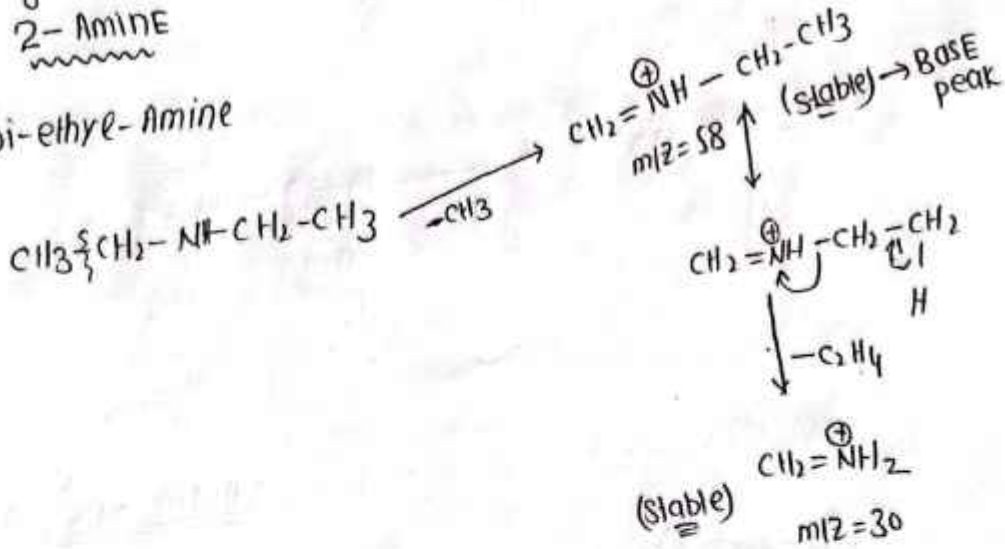 2°- AMINE
Di-ethyl-Amine
CH3 CH2 - NH-CH2-CH3
-CH3
CH2 = ⊕NH - CH2-CH3
m/z = 58
(stable) → BASE
peak
CH2 = ⊕NH - CH2 - CH2
H
- C2H4
CH2 = ⊕NH2
(Stable)
m/z = 30